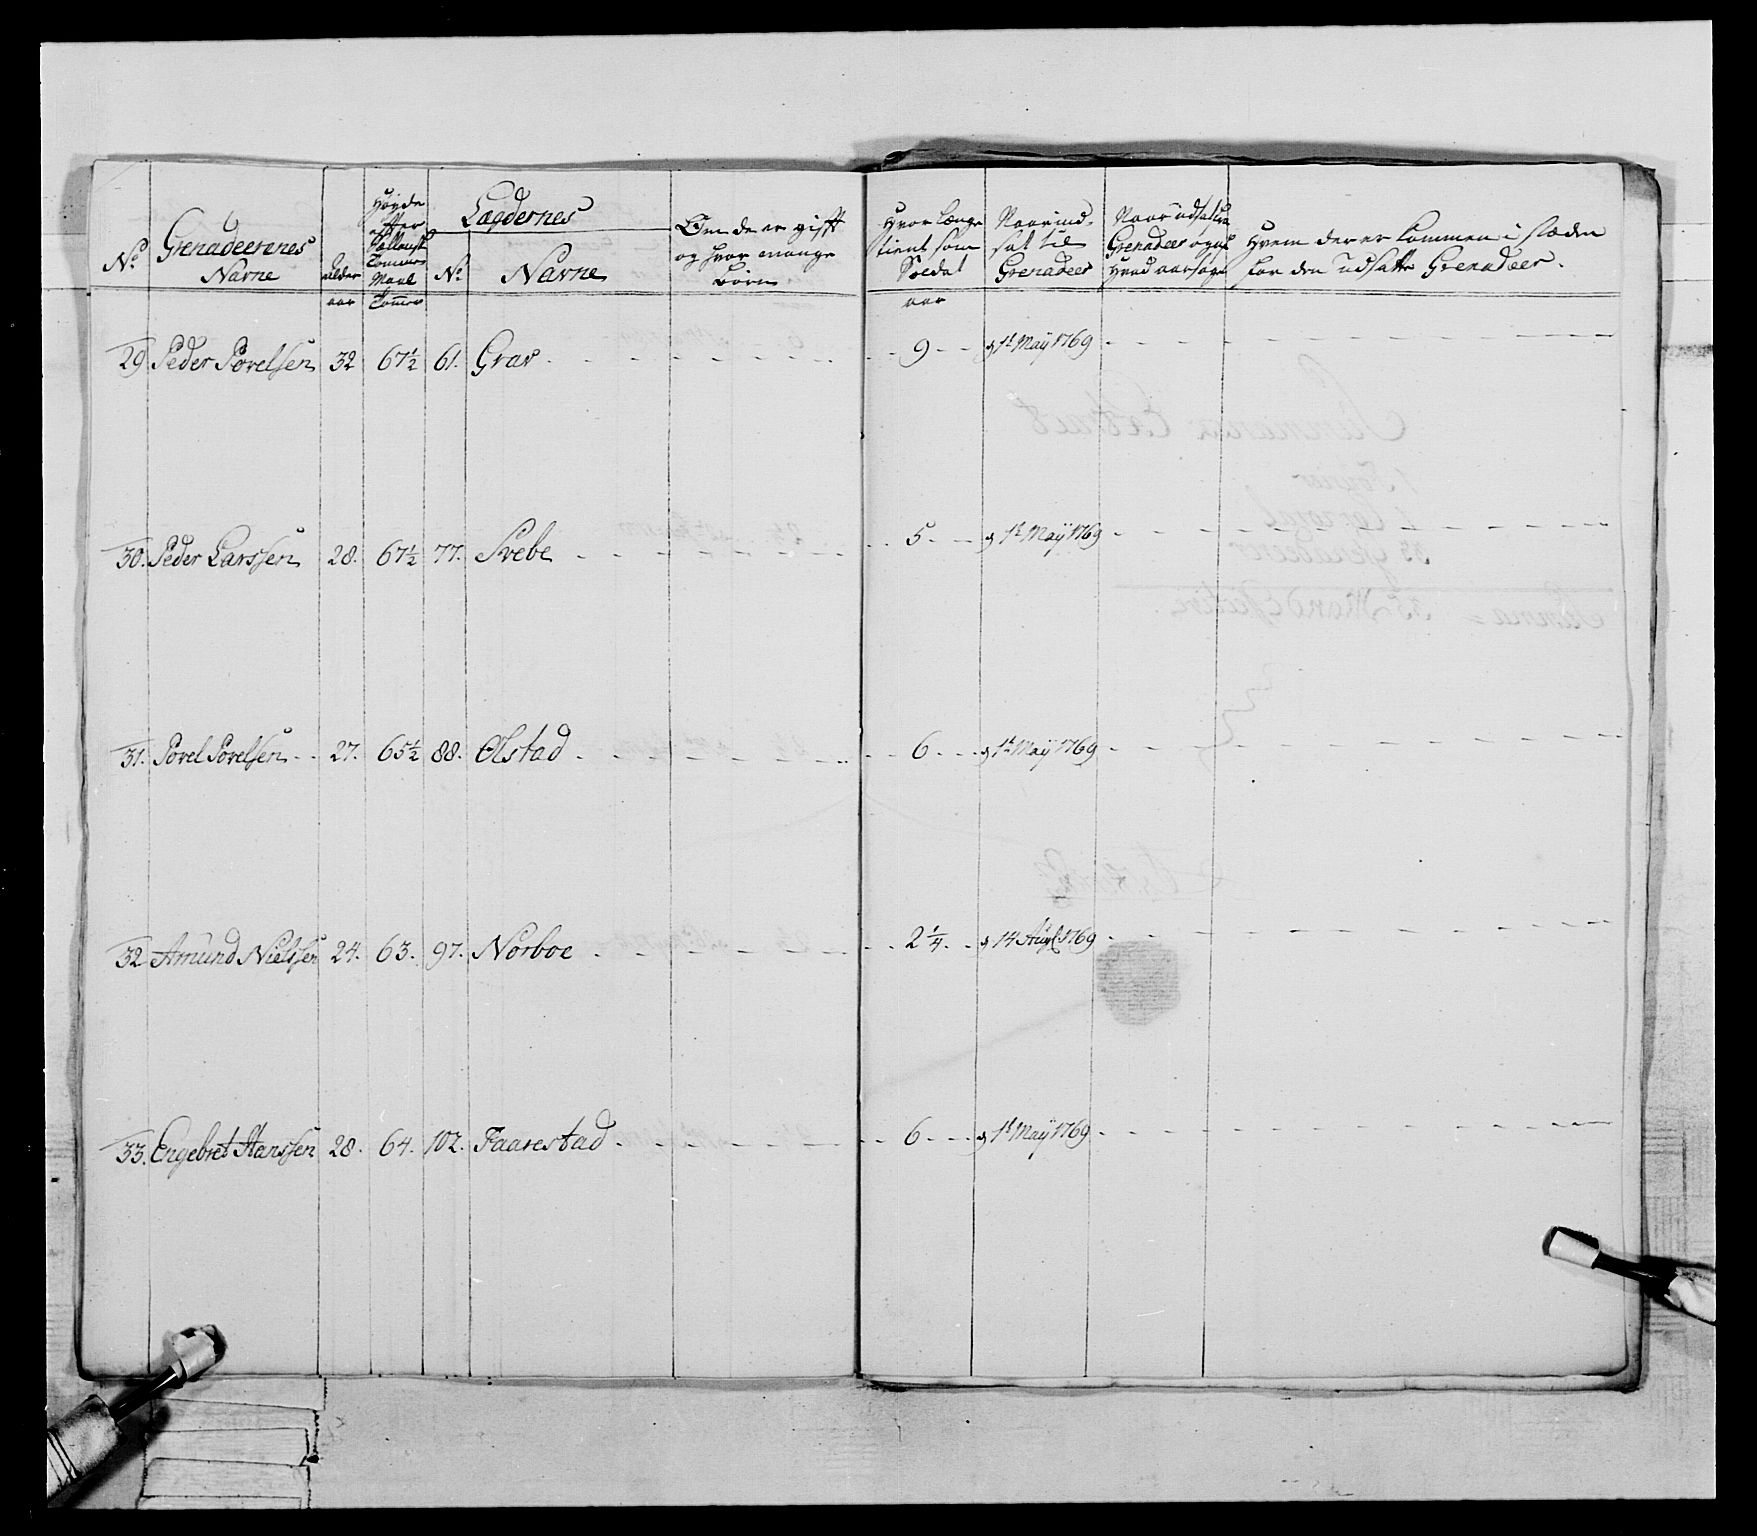 No
Grenadeerenes
Navne
alder
aar
Høyde
efter
Sællandsk
Tommer
Maal
Tommer
Lægdernes
No
Navne
Om de er gift
og hvor mange
Børn
Hvor længe
tient som
Soldat
aar
Naar ind-
sat til
Grenadeer
Naar udsat som
Grenadeer og af
Hvad aarsage
Hvem der er kommen i stæden
for den udsatte Grenadeer.
29. Peder Povelsen 32 67½ 61. Grav - 9 - d 1t May 1769
30. Peder Larssen 28. 67½ 77. Svebe - 5 - d 1t May 1769
31. Povel Povelsen - 27. 65½ 88. Ølstad - 6 - d 1t May 1769
32 Amund Nielssen 24. 63. 97. Norboe - 2¼ - d 14 Augt 1769
33. Engebret Hanssen 28. 64. 102. Faarestad - 6 - d 1t May 1769